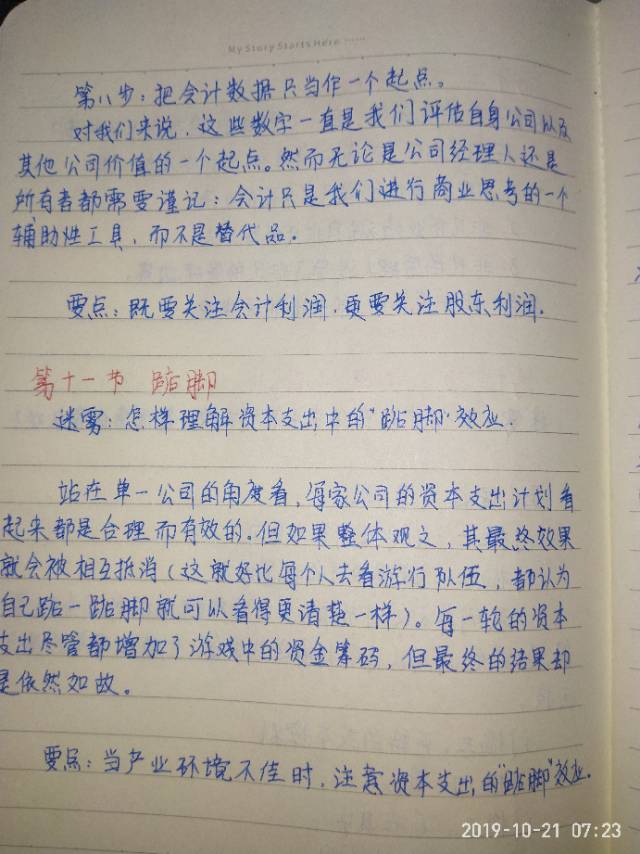 My Story Starts Here ......
第八步：把会计数据只当作一个起点。
对我们来说，这些数字一直是我们评估自身公司以及
其他公司价值的一个起点。然而无论是公司经理人还是
所有者都需要谨记：会计只是我们进行商业思考的一个
辅助性工具，而不是替代品。
要点：既要关注会计利润，更要关注股东利润.
第十一节 踮脚
迷雾：怎样理解资本支出中的“踮脚”效应.
站在单一公司的角度看，每家公司的资本支出计划看
起来都是合理而有效的。但如果整体观之，其最终效果
就会被相互抵消（这就好比每个人去看游行队伍，都认为
自己踮一踮脚就可以看得更清楚一样）。每一轮的资本
支出尽管都增加了游戏中的资金筹码，但最终的结果却
是依然如故。
要点：当产业环境不佳时，注意资本支出的“踮脚”效应.
2019-10-21 07:23